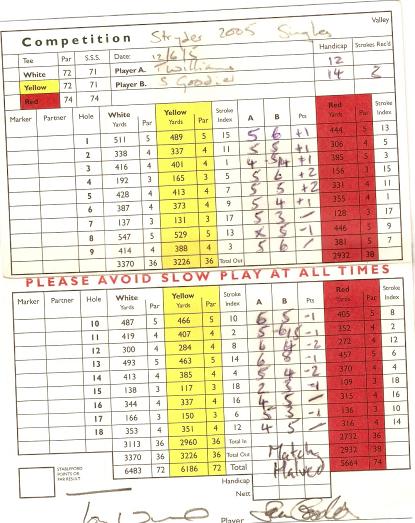 Valley
Competition Stryder 2005 Singles
Handicap Strokes Rec'd
Tee Par S.S.S. Date: 12/6/5
White 72 71 Player A. T Williams 12
Yellow 72 71 Player B. S Goodier 14 2
Red 74 74
Marker Partner Hole White Yards Par Yellow Yards Par Stroke Index A B Pts Red Yards Par Stroke Index
1 511 5 489 5 15 5 6 +1 444 5 13
2 338 4 337 4 11 5 5 +1 306 4 5
3 416 4 401 4 1 4 5/4 +1 385 5 3
4 192 3 165 3 5 6 +2 156 3 15
5 428 4 413 4 7 5 5 +2 331 4 11
6 387 4 373 4 9 5 4 +1 355 4 1
7 137 3 131 3 17 5 3 – 128 3 17
8 547 5 529 5 13 x 5 -1 446 5 9
9 414 4 388 4 3 5 6 / 381 5 7
3370 36 3226 36 Total Out 2932 38
PLEASE AVOID SLOW PLAY AT ALL TIMES
Marker Partner Hole White Yards Par Yellow Yards Par Stroke Index A B Pts Red Yards Par Stroke Index
10 487 5 466 5 10 6 5 -1 405 5 8
11 419 4 407 4 2 5 -1 352 4 2
12 300 4 284 4 8 6 4 -2 272 4 12
13 493 5 463 5 14 6 8 -1 457 5 6
14 413 4 385 4 4 5 4 -2 370 4
15 138 3 117 3 18 2 3 -1 109 3 18
16 344 4 337 4 16 4 5 – 315 4 16
17 166 3 150 3 6 5 3 -1 136 3 10
18 353 4 351 4 12 4 5 – 316 4 14
3113 36 2960 36 Total In 2732 36
3370 36 3226 36 Total Out Match 2932 38
6483 72 6186 72 Total Halved 5664 74
STABLEFORD POINTS OR PAR RESULT
Handicap
Nett
Player